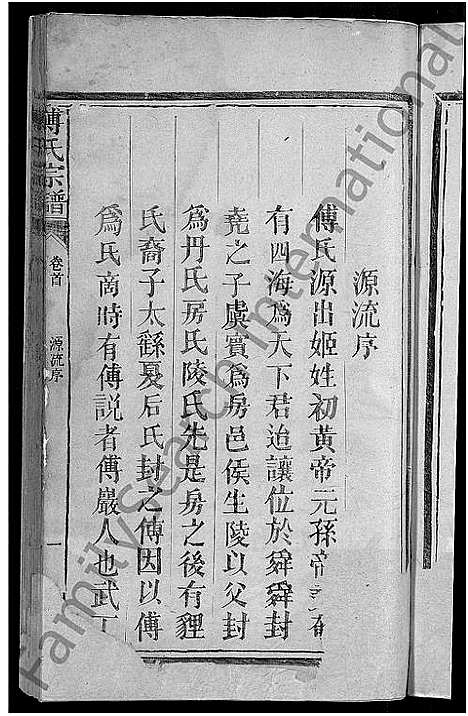 源流序
傅氏源出姬姓初黃帝元孫帝
有四海爲天下君迨讓位於舜舜封
堯之子虞賓爲房邑侯生陵以父封
爲丹氏房氏陵氏先是房之後有貍
氏裔子太繇夏后氏封之傅因以傅
爲氏商時有傅説者傅巖人也武丁
傅氏宗譜
卷首
源流序
一
FamilySearch International